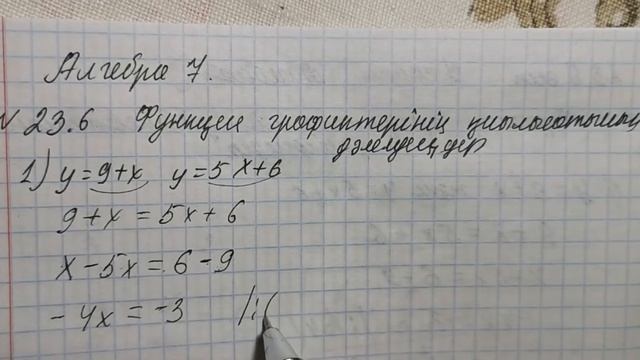 Алгебра 7.
№ 23.6 Функция графиктерінің қиылысатынын
дәлелдеңдер
1) y=9+x y=5x+6
9+x=5x+6
x-5x=6-9
-4x=-3 /:(